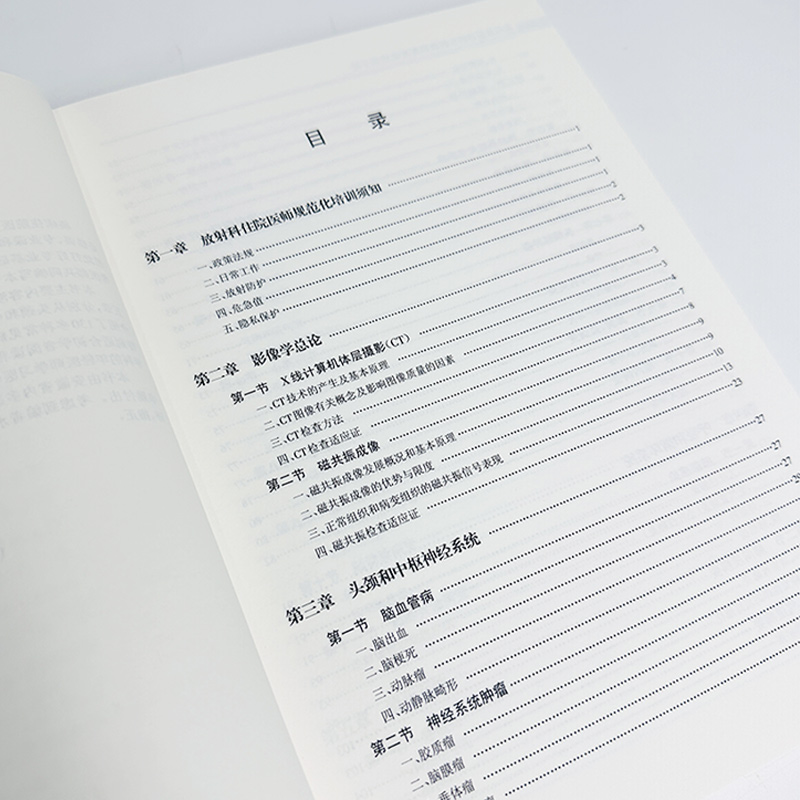 目 录
第一章 放射科住院医师规范化培训须知 1
一、政策法规 1
二、日常工作 1
三、放射防护 1
四、危急值 2
五、隐私保护 2
第二章 影像学总论 3
第一节 X线计算机体层摄影(CT) 3
一、CT技术的产生及基本原理 3
二、CT图像有关概念及影响图像质量的因素 4
三、CT检查方法 7
四、CT检查适应证 8
第二节 磁共振成像 9
一、磁共振成像发展概况和基本原理 9
二、磁共振成像的优势与限度 10
三、正常组织和病变组织的磁共振信号表现 13
四、磁共振检查适应证 23
第三章 头颈和中枢神经系统 27
第一节 脑血管病 27
一、脑出血 27
二、脑梗死
三、动脉瘤
四、动静脉畸形
第二节 神经系统肿瘤
一、胶质瘤
二、脑膜瘤
垂体瘤